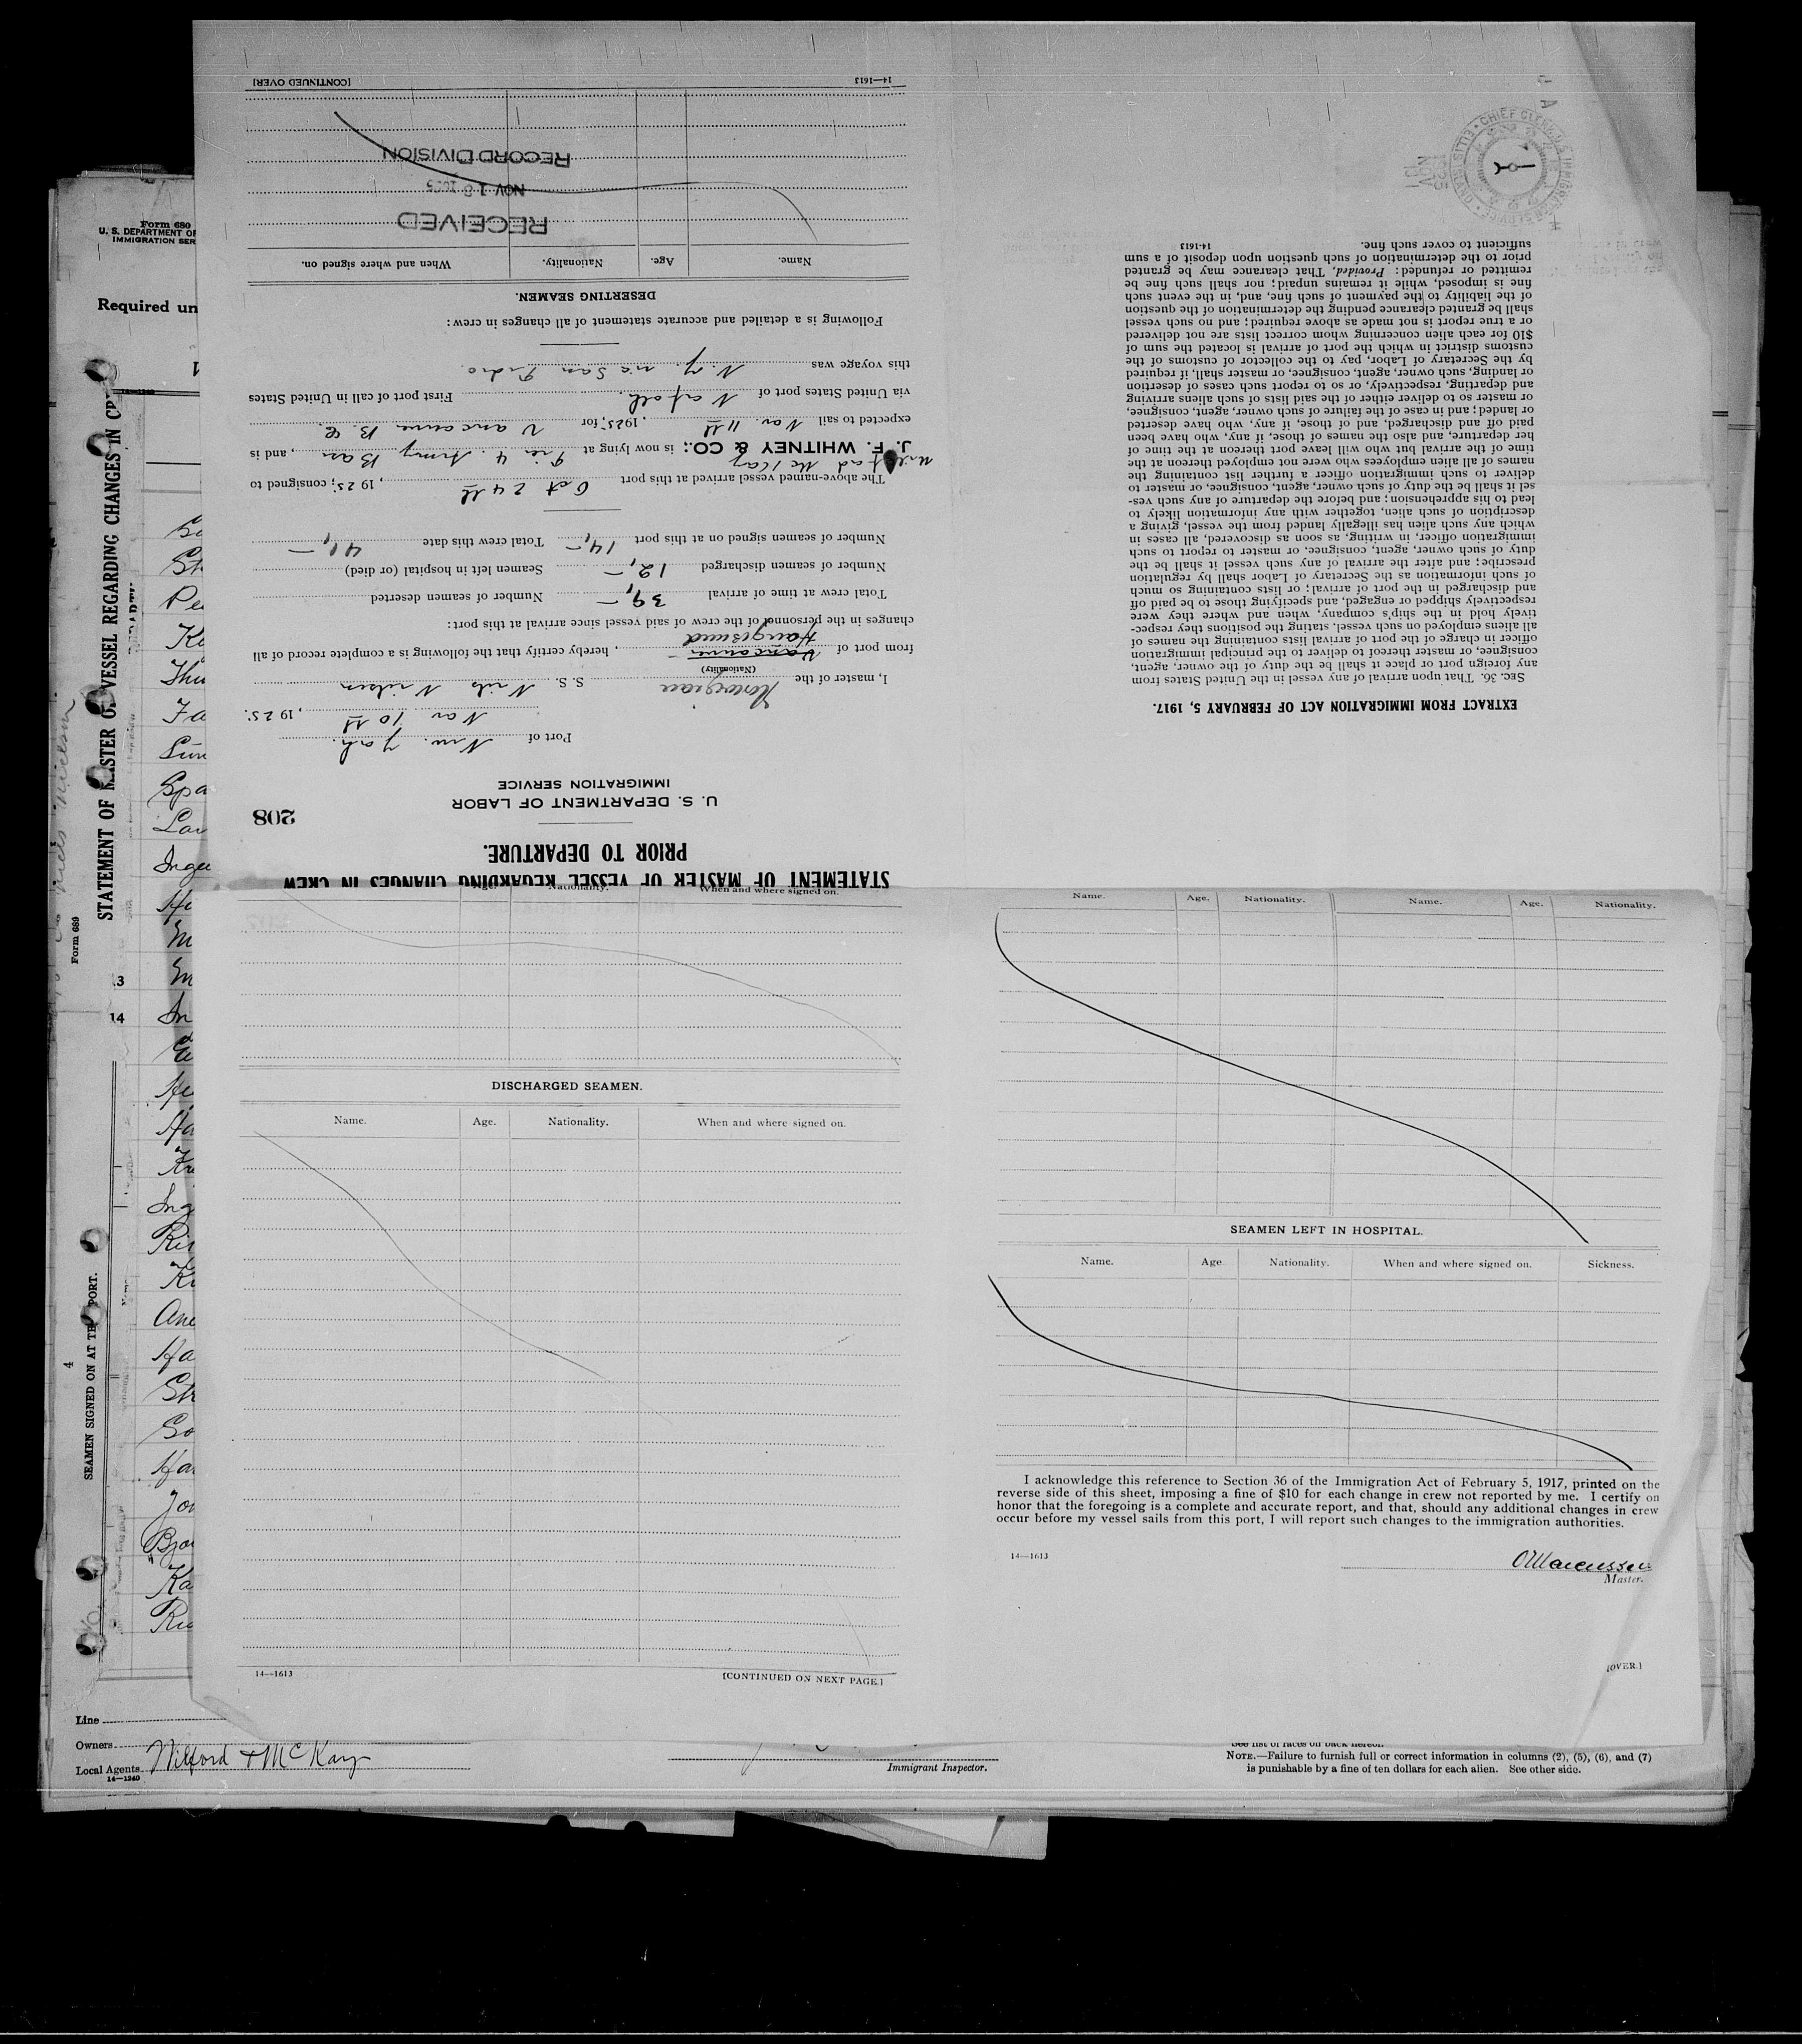 STATEMENT OF MASTER OF VESSEL REGARDING CHANGES IN CREW
PRIOR TO DEPARTURE.
208
U. S. DEPARTMENT OF LABOR
IMMIGRATION SERVICE
Port of New York.
Nov 10 th, 1925.
I, master of the Norwegian S. S. Niels Nielsen
(Nationality)
from port of Vancouver Haugesund, hereby certify that the following is a complete record of all
changes in the personnel of the crew of said vessel since arrival at this port:
Total crew at time of arrival 39,— Number of seamen deserted
Number of seamen discharged 12,— Seamen left in hospital (or died)
Number of seamen signed on at this port 14,— Total crew this date 41,—
The above-named vessel arrived at this port Oct 24 th, 1925; consigned to
J. F. WHITNEY & CO.; is now lying at Pier 4. Army Base, and is
expected to sail Nov. 11 th, 1925; for Vancouver B. C.
via United States port of Norfolk First port of call in United States
this voyage was N. Y. via San Pedro.
Following is a detailed and accurate statement of all changes in crew:
DESERTING SEAMEN.
Name. Age. Nationality. When and where signed on.
RECEIVED
NOV 18 1925
RECORD DIVISION
14—1613 [CONTINUED OVER]
EXTRACT FROM IMMIGRATION ACT OF FEBRUARY 5, 1917.
SEC. 36. That upon arrival of any vessel in the United States from
any foreign port or place it shall be the duty of the owner, agent,
consignee, or master thereof to deliver to the principal immigration
officer in charge of the port of arrival lists containing the names of
all aliens employed on such vessel, stating the positions they respec-
tively hold in the ship's company, when and where they were
respectively shipped or engaged, and specifying those to be paid off
and discharged in the port of arrival; or lists containing so much
of such information as the Secretary of Labor shall by regulation
prescribe; and after the arrival of any such vessel it shall be the
duty of such owner, agent, consignee, or master to report to such
immigration officer, in writing, as soon as discovered, all cases in
which any such alien has illegally landed from the vessel, giving a
description of such alien, together with any information likely to
lead to his apprehension; and before the departure of any such ves-
sel it shall be the duty of such owner, agent, consignee, or master to
deliver to such immigration officer a further list containing the
names of all alien employees who were not employed thereon at the
time of the arrival but who will leave port thereon at the time of
her departure, and also the names of those, if any, who have been
paid off and discharged, and of those, if any, who have deserted
or landed; and in case of the failure of such owner, agent, consignee,
or master so to deliver either of the said lists of such aliens arriving
and departing, respectively, or so to report such cases of desertion
or landing, such owner, agent, consignee, or master shall, if required
by the Secretary of Labor, pay to the collector of customs of the
customs district in which the port of arrival is located the sum of
$10 for each alien concerning whom correct lists are not delivered
or a true report is not made as above required; and no such vessel
shall be granted clearance pending the determination of the question
of the liability to the payment of such fine, and, in the event such
fine is imposed, while it remains unpaid; nor shall such fine be
remitted or refunded: Provided, That clearance may be granted
prior to the determination of such question upon deposit of a sum
sufficient to cover such fine.
14-1613
Age. Nationality. When and where signed on.
DISCHARGED SEAMEN.
Name. Age. Nationality. When and where signed on.
14—1613 [CONTINUED ON NEXT PAGE.]
Name. Age. Nationality. Name. Age. Nationality.
SEAMEN LEFT IN HOSPITAL.
Name. Age Nationality. When and where signed on. Sickness.
I acknowledge this reference to Section 36 of the Immigration Act of February 5, 1917, printed on the
reverse side of this sheet, imposing a fine of $10 for each change in crew not reported by me. I certify on
honor that the foregoing is a complete and accurate report, and that, should any additional changes in crew
occur before my vessel sails from this port, I will report such changes to the immigration authorities.
14—1613
Master.
[OVER.]
Form 680
U. S. DEPARTMENT OF
IMMIGRATION SER
Required un
STATEMENT OF MASTER OF VESSEL REGARDING CHANGES IN CR
Form 689
SEAMEN SIGNED ON AT THIS PORT.
4
13
14
Line
Owners
Local Agents Wilford & McKay
14—1240
Immigrant Inspector.
See list of races on back hereof.
NOTE.—Failure to furnish full or correct information in columns (2), (5), (6), and (7)
is punishable by a fine of ten dollars for each alien. See other side.